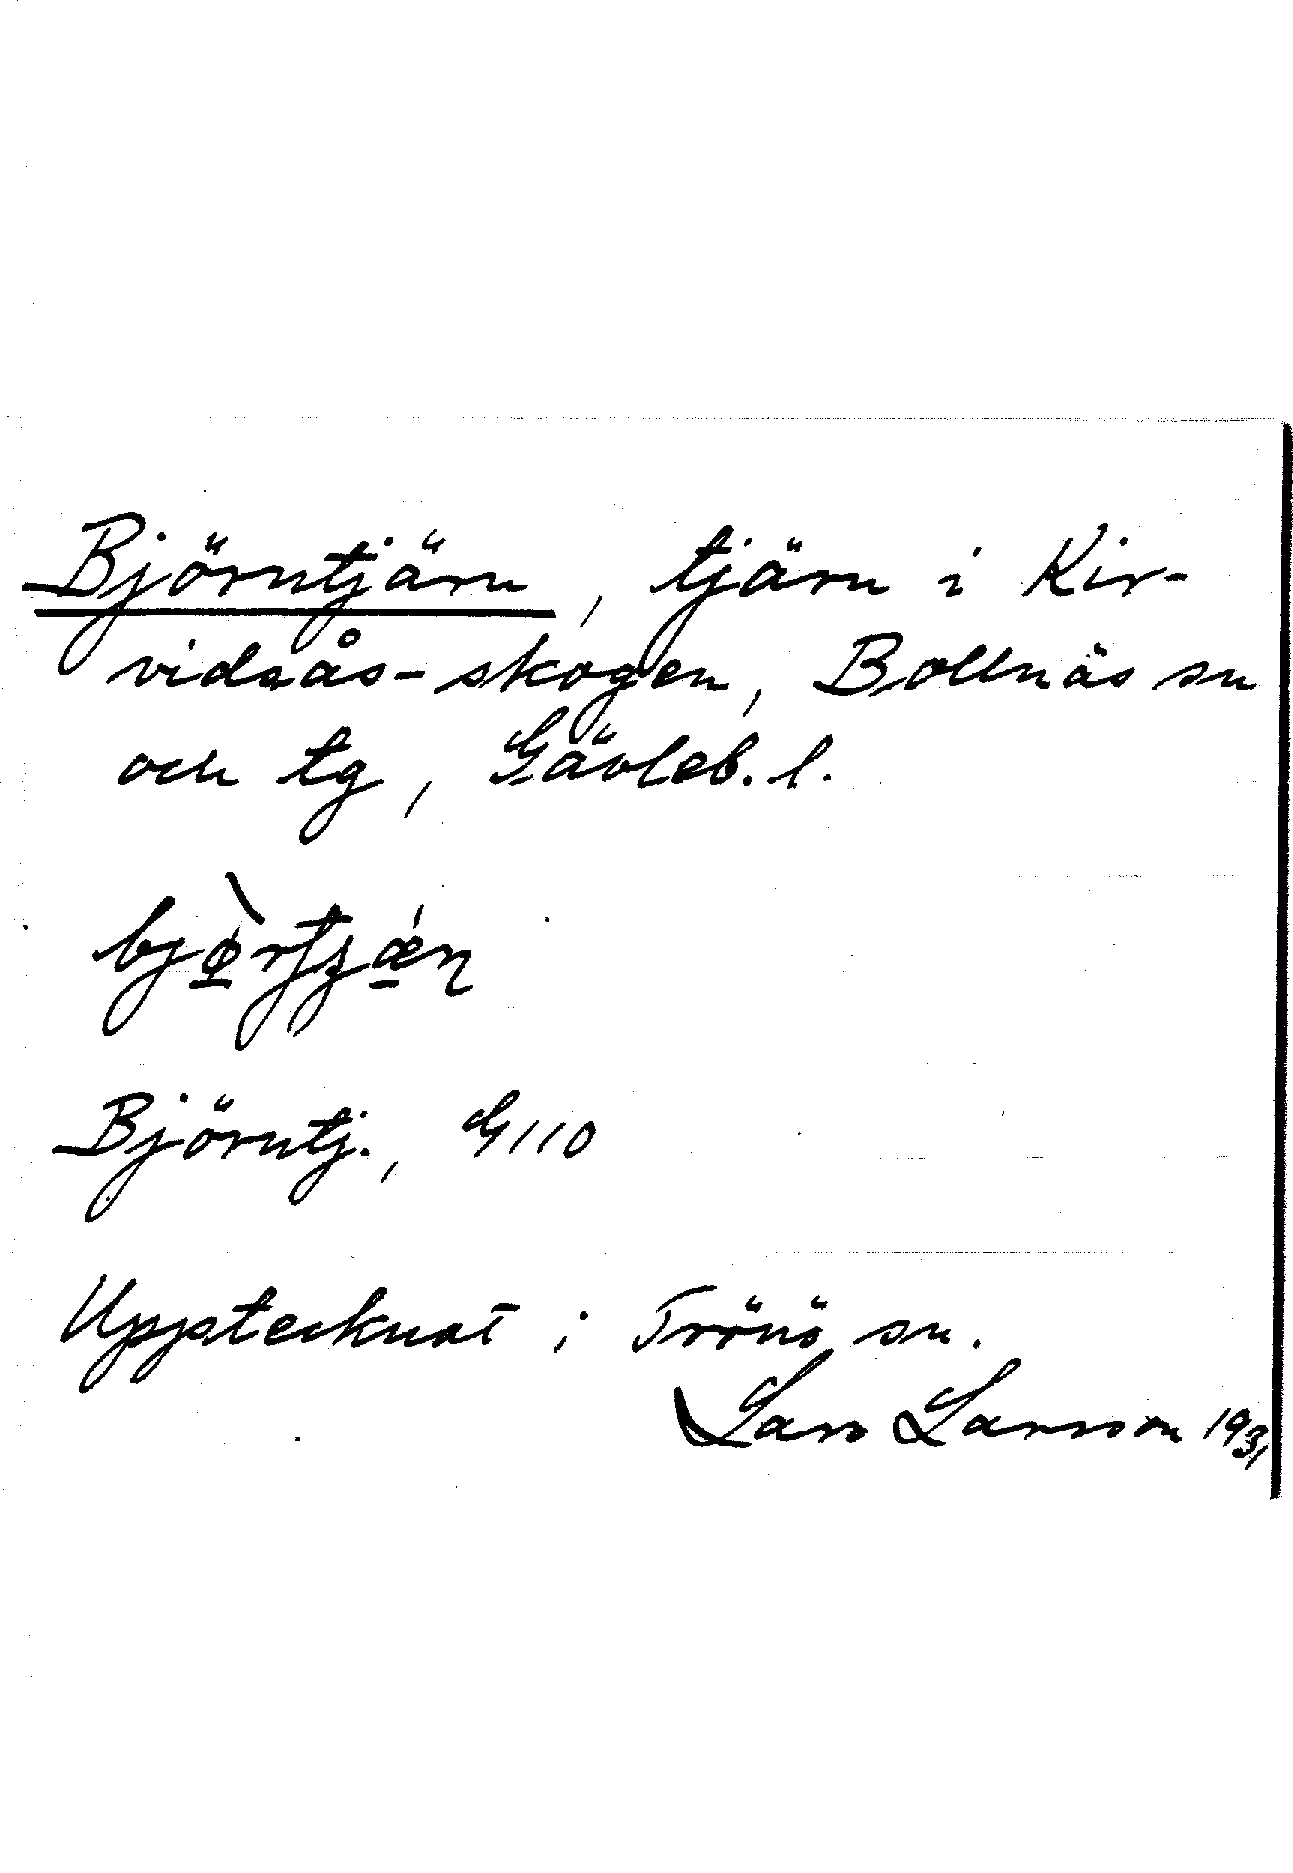 Björntjärn, tjärn i Kir-
vidsås-skogen, Bollnäs sn
och tg, Gävleb. l.
Björntj., G110
Upptecknat i Trönö sn.
Lars Larsson 1931